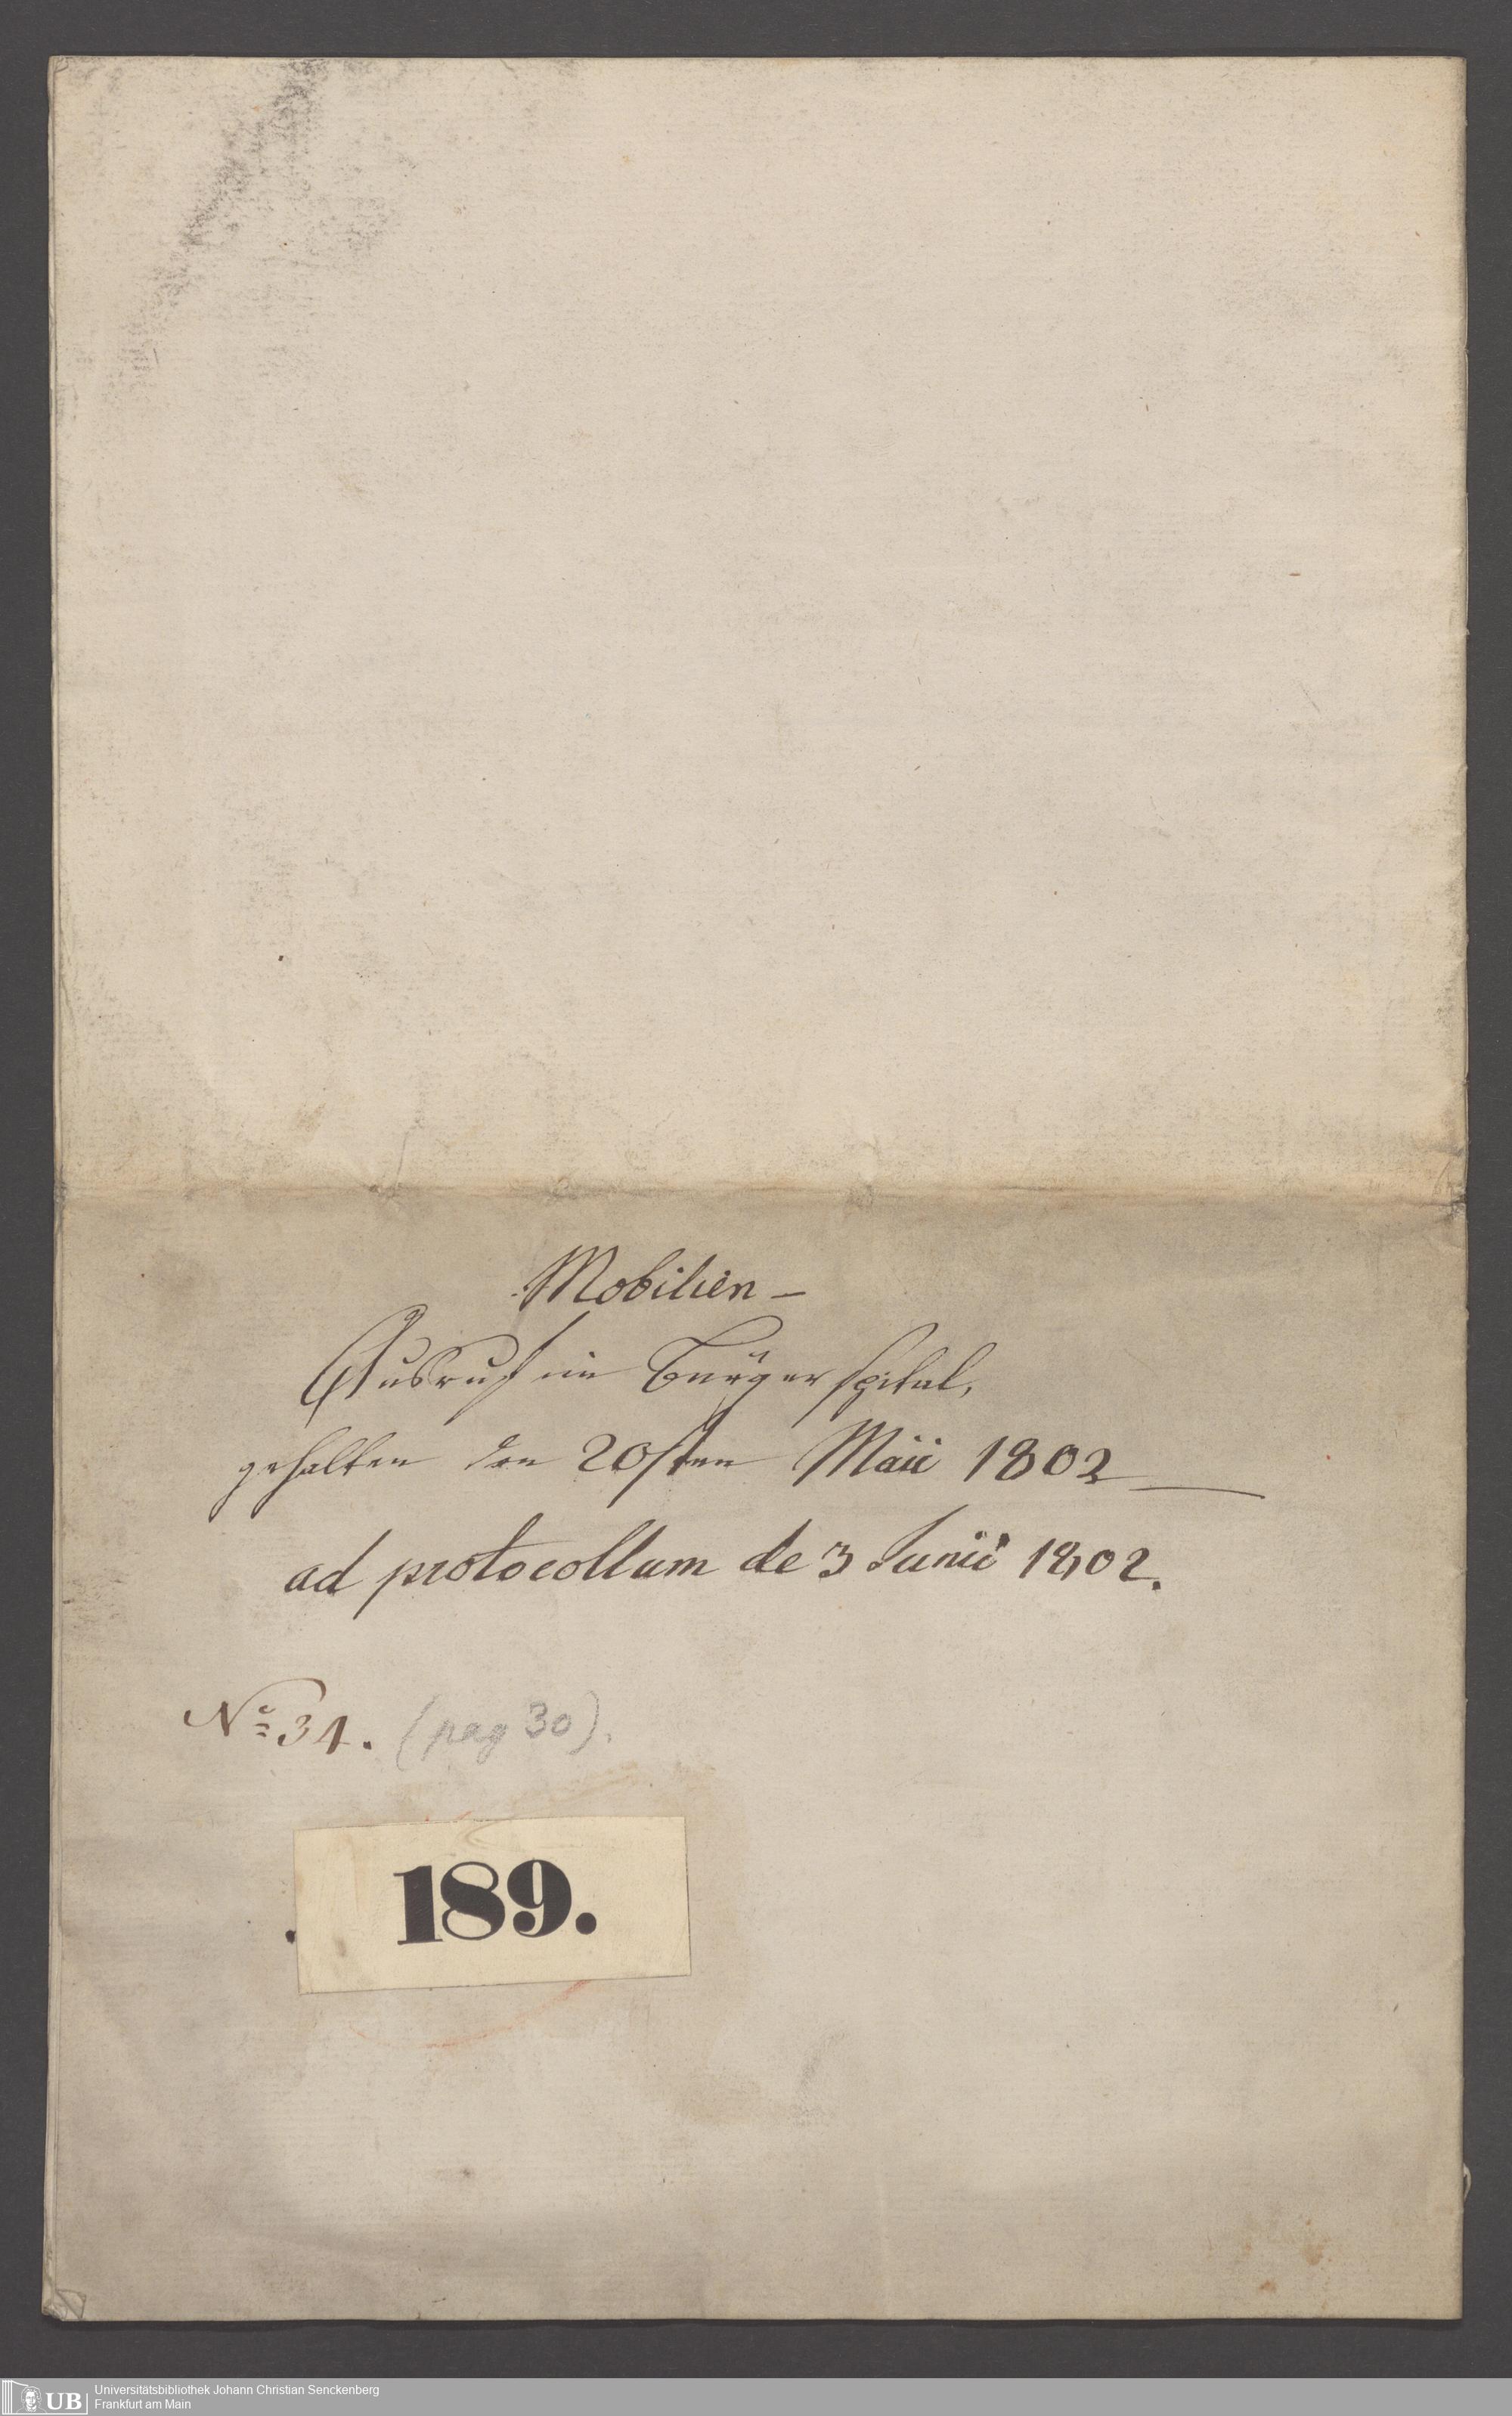 Mobilien –
Ausruf im Bürgerspital,
gehalten den 20sten Maii 1802
ad protocollum de 3 Junii 1802.
No 31. (pag 30).
189.
UB
Universitätsbibliothek Johann Christian Senckenberg
Frankfurt am Main